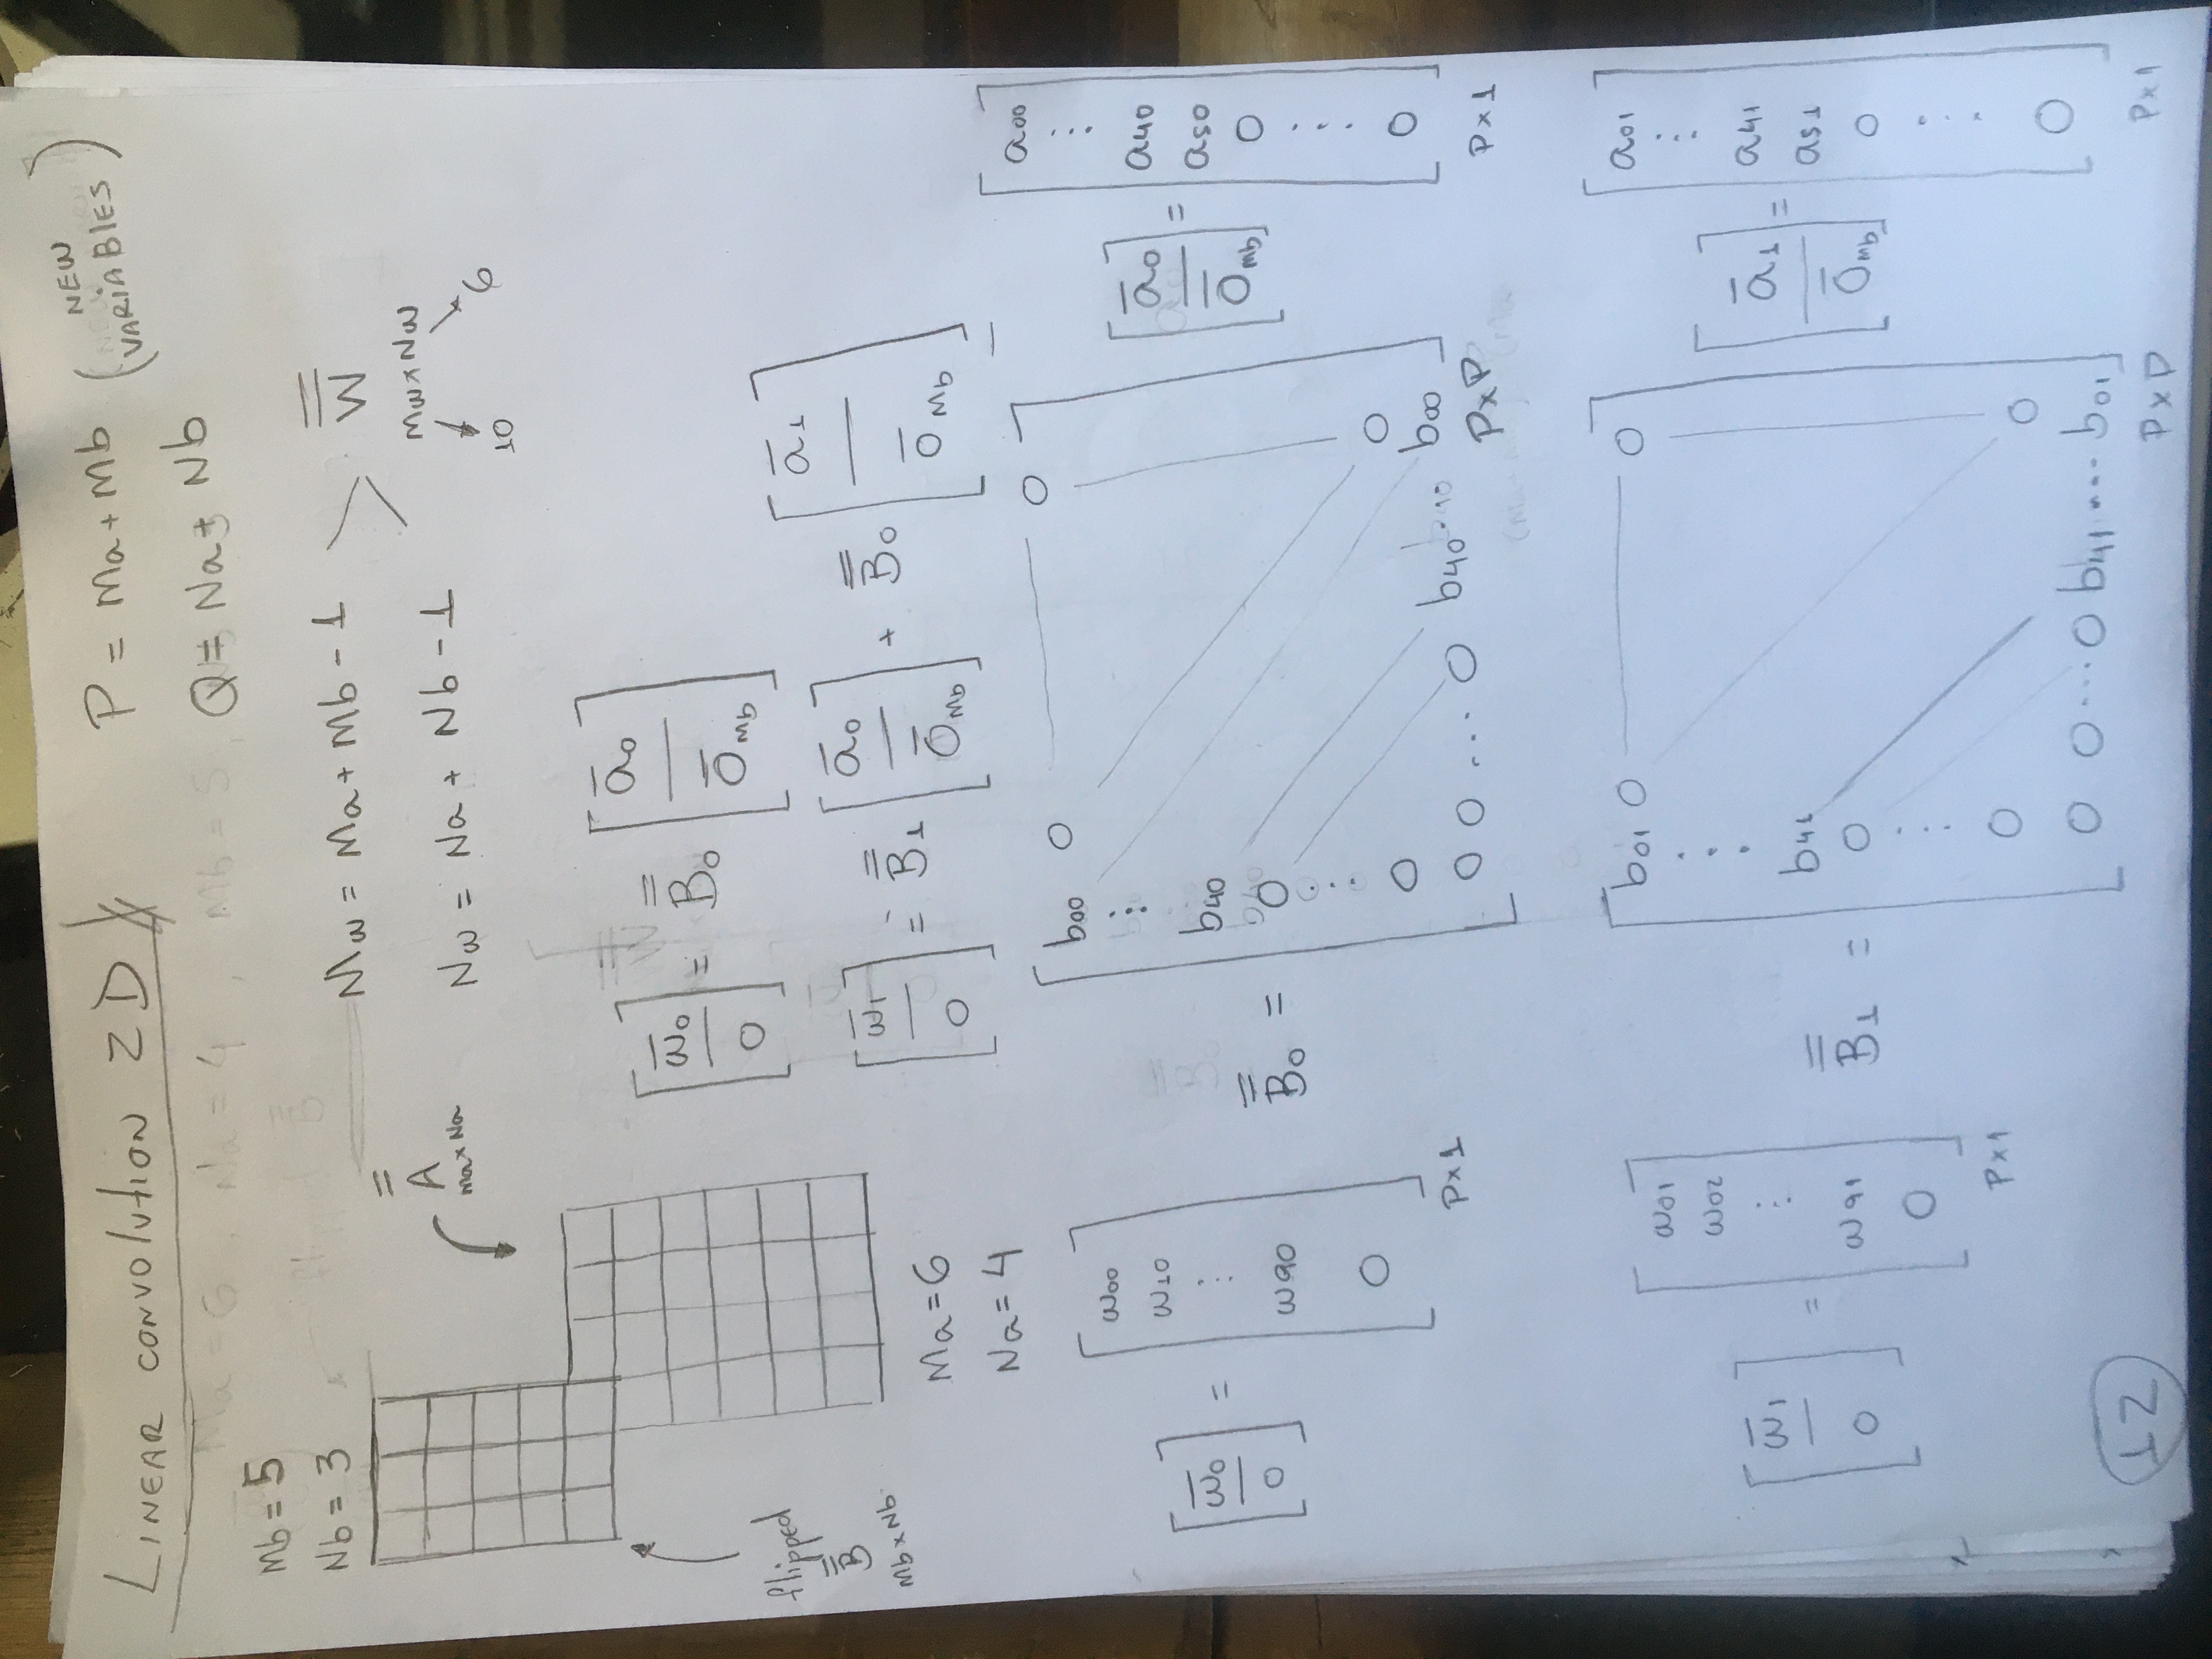 LINEAR CONVOLUTION 2D
P = Ma + Mb (NEW VARIABLES)
Q = Na + Nb
Mb = 5
Nb = 3
A
Ma×Na
Mw = Ma + Mb - 1
Nw = Na + Nb - 1
W
Mw×Nw
10
6
flipped
B
Mb×Nb
Ma = 6
Na = 4
[w̄0 | 0] = B0 [ā0 | 0̄Mb]
[w̄1 | 0] = B1 [ā0 | 0̄Mb] + B0 [ā1 | 0̄Mb]
[w̄0 | 0] =
w00
w10
...
w90
0
P×1
B0 =
b00 0 0
...
b40
0
...
0 0
0 0 ... 0 b40 ... b00
P×P
[ā0 | 0̄Mb] =
a00
...
a40
a50
0
...
0
P×1
[w̄1 | 0] =
w01
w02
...
w91
0
P×1
B1 =
b01 0 0
...
b41
0
...
0 0
0 0 ... 0 b41 ... b01
P×P
[ā1 | 0̄Mb] =
a01
...
a41
a51
0
...
0
P×1
12